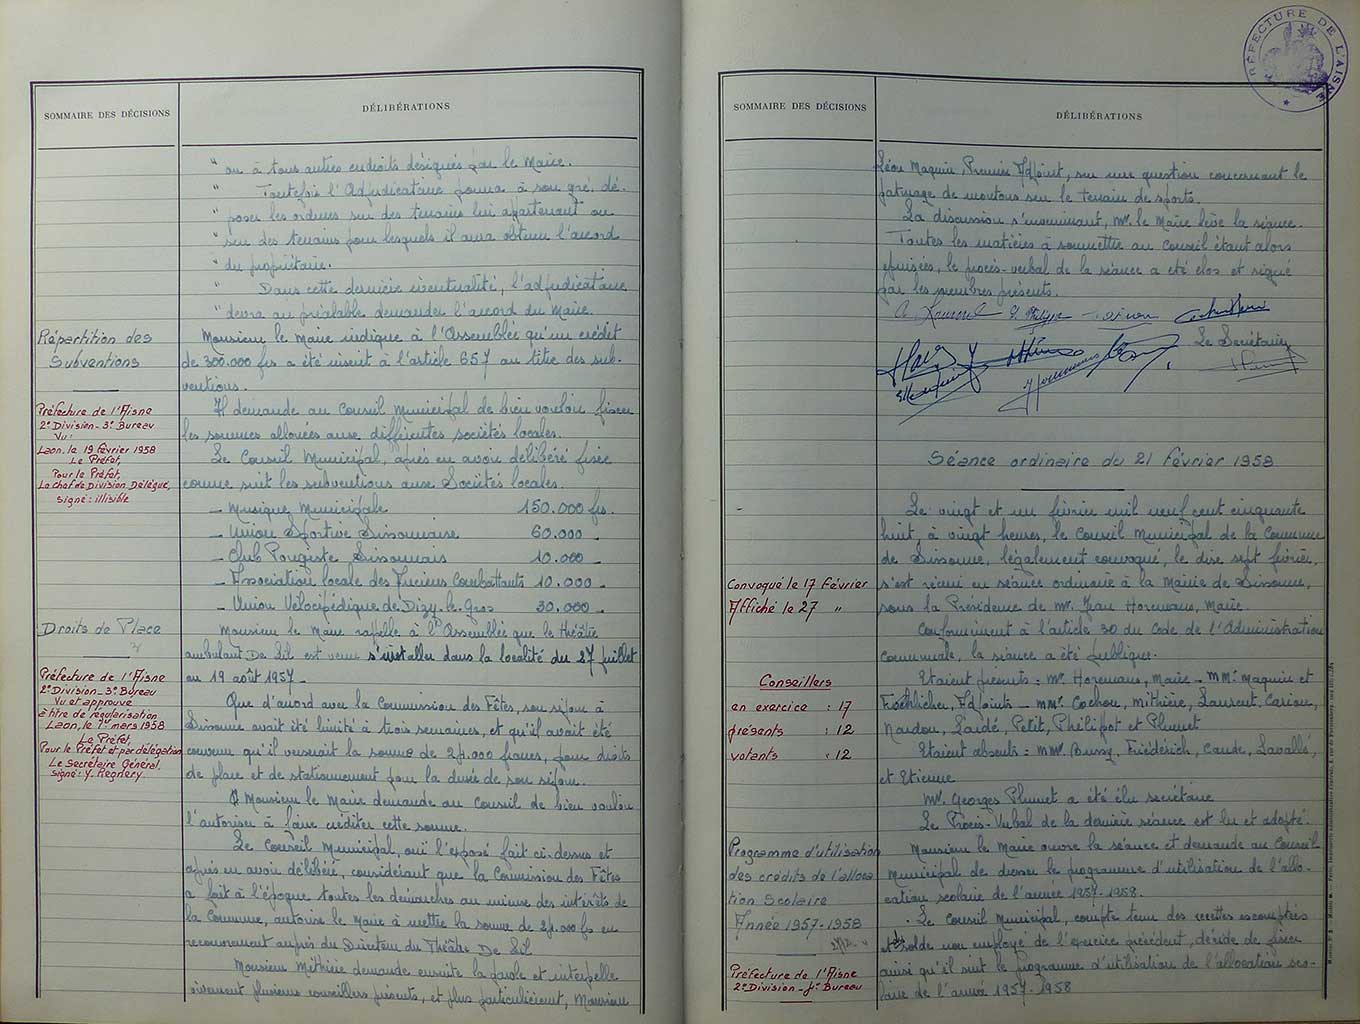 SOMMAIRE DES DÉCISIONS
DÉLIBÉRATIONS
" ou à tous autres endroits désignés par le Maire.
" Toutefois l'Adjudicataire pourra à son gré dé-
" poser les ordures sur des terrains lui appartenant ou
" sur des terrains pour lesquels il aura obtenu l'accord
" du propriétaire.
" Dans cette dernière éventualité, l'adjudicataire
" devra au préalable demander l'accord du Maire.
Répartition des
Subventions
Monsieur le Maire indique à l'Assemblée qu'un crédit
de 300.000 frs a été inscrit à l'article 657 au titre des sub-
ventions.
Préfecture de l'Aisne
2e Division - 3e Bureau
Vu:
Laon, le 19 février 1958
Le Préfet,
Pour le Préfet,
Le Chef de Division Délégué,
signé : illisible
Il demande au Conseil Municipal de bien vouloir fixer
les sommes allouées aux différentes sociétés locales.
Le Conseil Municipal, après en avoir délibéré fixe
comme suit les subventions aux Sociétés locales.
- Musique Municipale 150.000 frs.
- Union Sportive Sissonnaise 60.000 -
- Club Pongiste Sissonnais 10.000 -
- Association locale des Anciens Combattants 10.000 -
- Union Vélocipédique de Dizy-le-Gros 30.000 -
Droits de Place
Monsieur le Maire rappelle à l'Assemblée que le théâtre
ambulant De Lil est venu s'installer dans la localité du 27 juillet
au 19 août 1957 -
Préfecture de l'Aisne
2e Division - 3e Bureau
Vu et approuvé
à titre de régularisation
Laon, le 1er mars 1958
Le Préfet,
Pour le Préfet et par délégation
Le Secrétaire Général
signé : Y. Regnery.
Que d'accord avec la Commission des Fêtes, son séjour à
Sissonne avait été limité à trois semaines, et qu'il avait été
convenu qu'il verserait la somme de 24.000 francs, pour droits
de place et de stationnement pour la durée de son séjour.
Monsieur le Maire demande au Conseil de bien vouloir
l'autoriser à faire créditer cette somme.
Le Conseil Municipal, ouï l'exposé fait ci-dessus et
après en avoir délibéré, considérant que la Commission des Fêtes
a fait à l'époque toutes les démarches au mieux des intérêts de
la Commune, autorise le Maire à mettre la somme de 24.000 frs en
recouvrement auprès du Directeur du Théâtre De Lil
Monsieur Mithière demande ensuite la parole et interpelle
vivement plusieurs conseillers présents, et plus particulièrement, Monsieur
SOMMAIRE DES DÉCISIONS
DÉLIBÉRATIONS
PRÉFECTURE DE L'AISNE
Léon Maquin Premier Adjoint, sur une question concernant le
pâturage de moutons sur le terrain de sports.
La discussion s'envenimant, Mr. le Maire lève la séance.
Toutes les matières à soumettre au Conseil étant alors
épuisées, le procès-verbal de la séance a été clos et signé
par les membres présents.
Le Secrétaire
Séance ordinaire du 21 Février 1958
Le vingt et un février mil neuf cent cinquante
huit, à vingt heures, le Conseil Municipal de la Commune
de Sissonne, légalement convoqué, le dix sept février,
s'est réuni en séance ordinaire à la Mairie de Sissonne,
sous la Présidence de Mr. Jean Horemans, Maire.
Convoqué le 17 Février
Affiché le 27 "
Conformément à l'article 30 du Code de l'Administration
Communale, la séance a été publique.
Conseillers
en exercice : 17
présents : 12
votants : 12
Etaient présents : Mr. Horemans, Maire - MM. Maquin et
Froehlicher, Adjoints - MM. Cochon, Mithière, Laurent, Cariou,
Naudou, Laidé, Petit, Philipot et Plumet
Etaient absents : MM. Bussy, Friédérich, Caude, Lavallé,
et Etienne
Mr. Georges Plumet a été élu secrétaire
Le Procès-Verbal de la dernière séance est lu et adopté.
Programme d'utilisation
des crédits de l'alloca
tion Scolaire
Année 1957-1958
Monsieur le Maire ouvre la séance et demande au Conseil
Municipal de dresser le programme d'utilisation de l'allo-
cation scolaire de l'année 1957-1958.
Le Conseil Municipal, compte tenu des recettes escomptées
et solde non employé de l'exercice précédent, décide de fixer
ainsi qu'il suit le programme d'utilisation de l'allocation sco-
laire de l'année 1957-1958
Préfecture de l'Aisne
2e Division - 1er Bureau